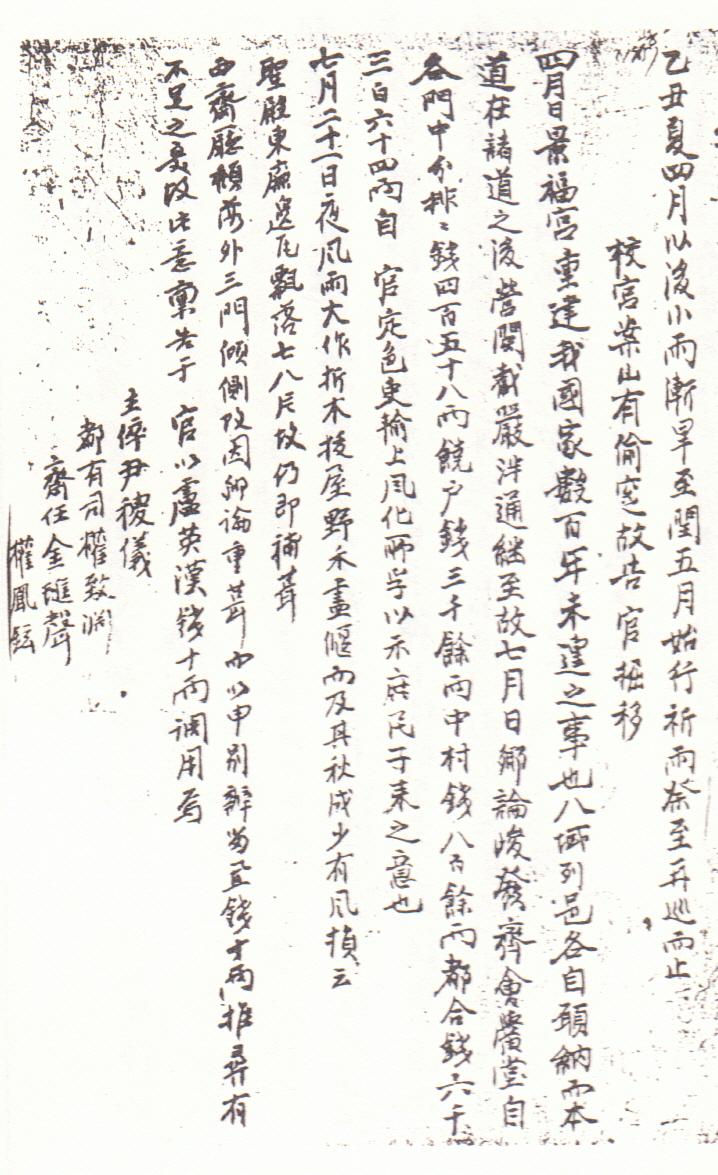 乙丑夏四月以後小雨漸旱至閏五月始行祈雨祭至再巡而止
校宮案山有偷窆故告 官掘移
四月日景福宮重建我國家數百年未遑之事也八域列邑各自願納而本
道在諸道之後營關截嚴泮通継至故七月日鄉論峻發齊會黌堂自
各門中分排〻錢四百五十八兩饒户錢三千餘兩中村錢八百餘兩都合錢六千
三百六十四兩自 官定色吏輸上風化所孚以示庶民子來之意也
七月二十一日夜風雨大作折木拔屋野禾盡偃而及其秋成少有風損云
聖殿東廡邊瓦飄落七八片故仍即補葺
西齋廳頹落外三門傾側故因鄉論重葺而以甲別辦當直錢十兩推尋有
不足之患故此意稟告于 官以盧英漢錢十兩調用焉
主倅尹稷儀
都有司權致淵
齋任金繼聲
權鳳鉉